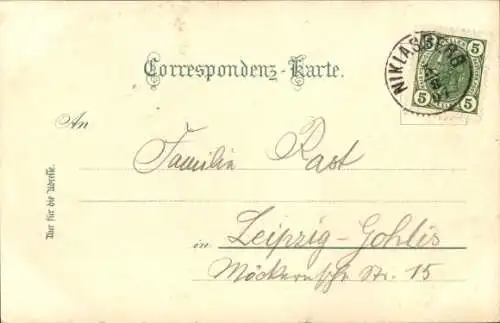 Correspondenz-Karte.
NIKLASBERG
5 5
5 5
An
Familie Rast
in Leipzig-Gohlis
Möckernsche Str. 15
Nur für die Adresse.